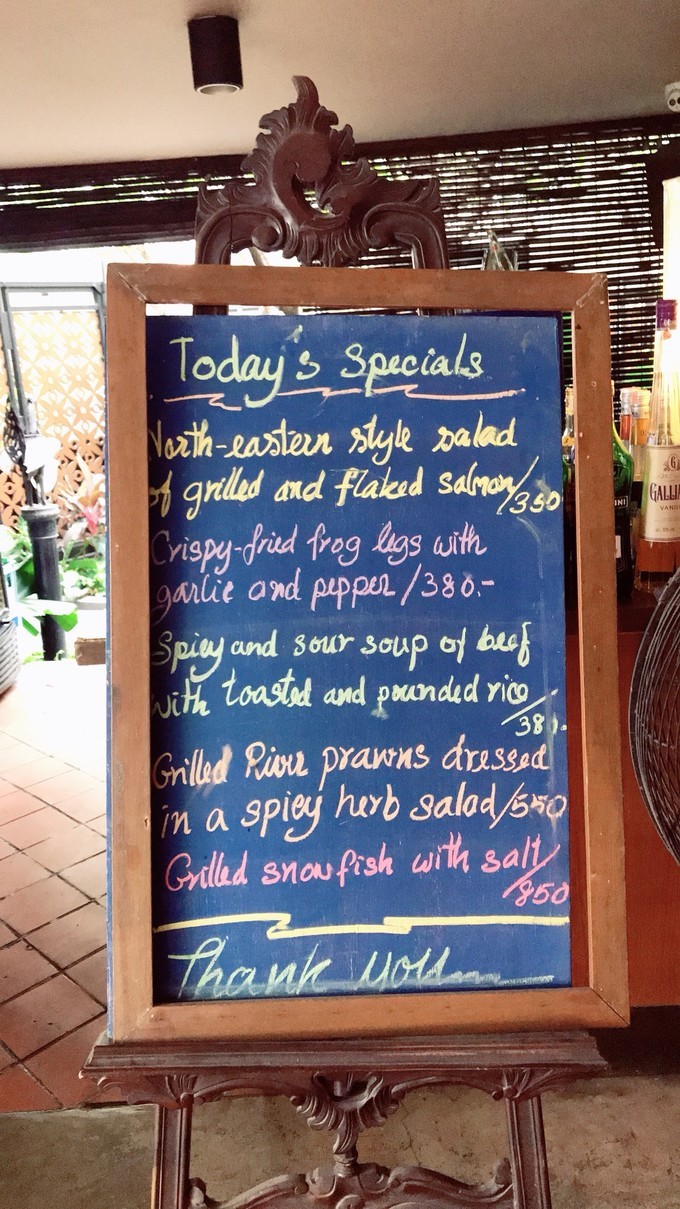 Today's Specials
North-eastern style salad
of grilled and flaked salmon/350
Crispy-fried frog legs with
garlic and pepper /380.-
Spicy and sour soup of beef
with toasted and pounded rice
Grilled River prawns dressed
in a spicy herb salad/550
Grilled snowfish with salt/
850
Thank you
GALLIA
VANI
INI